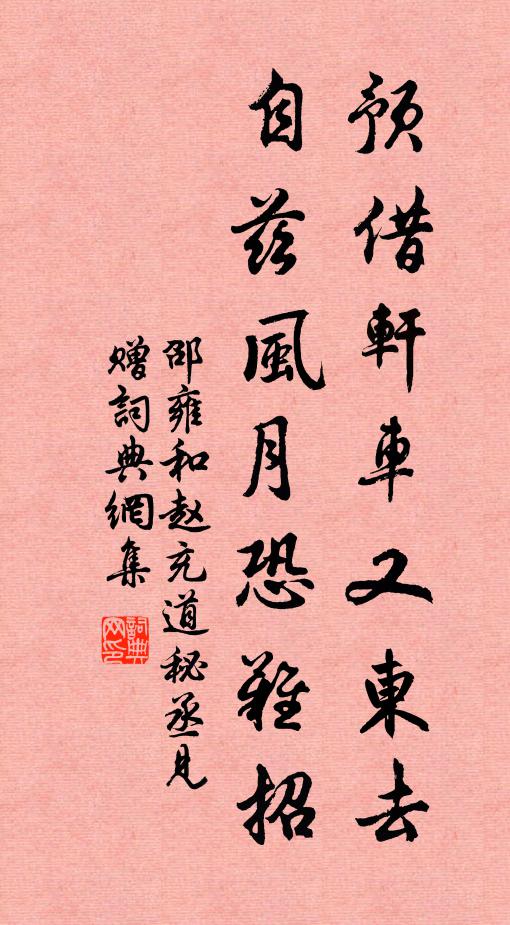 預借軒車又東去
自茲風月恐難招
邵雍和赵充道秘丞見
赠詞典網集
詞典网印